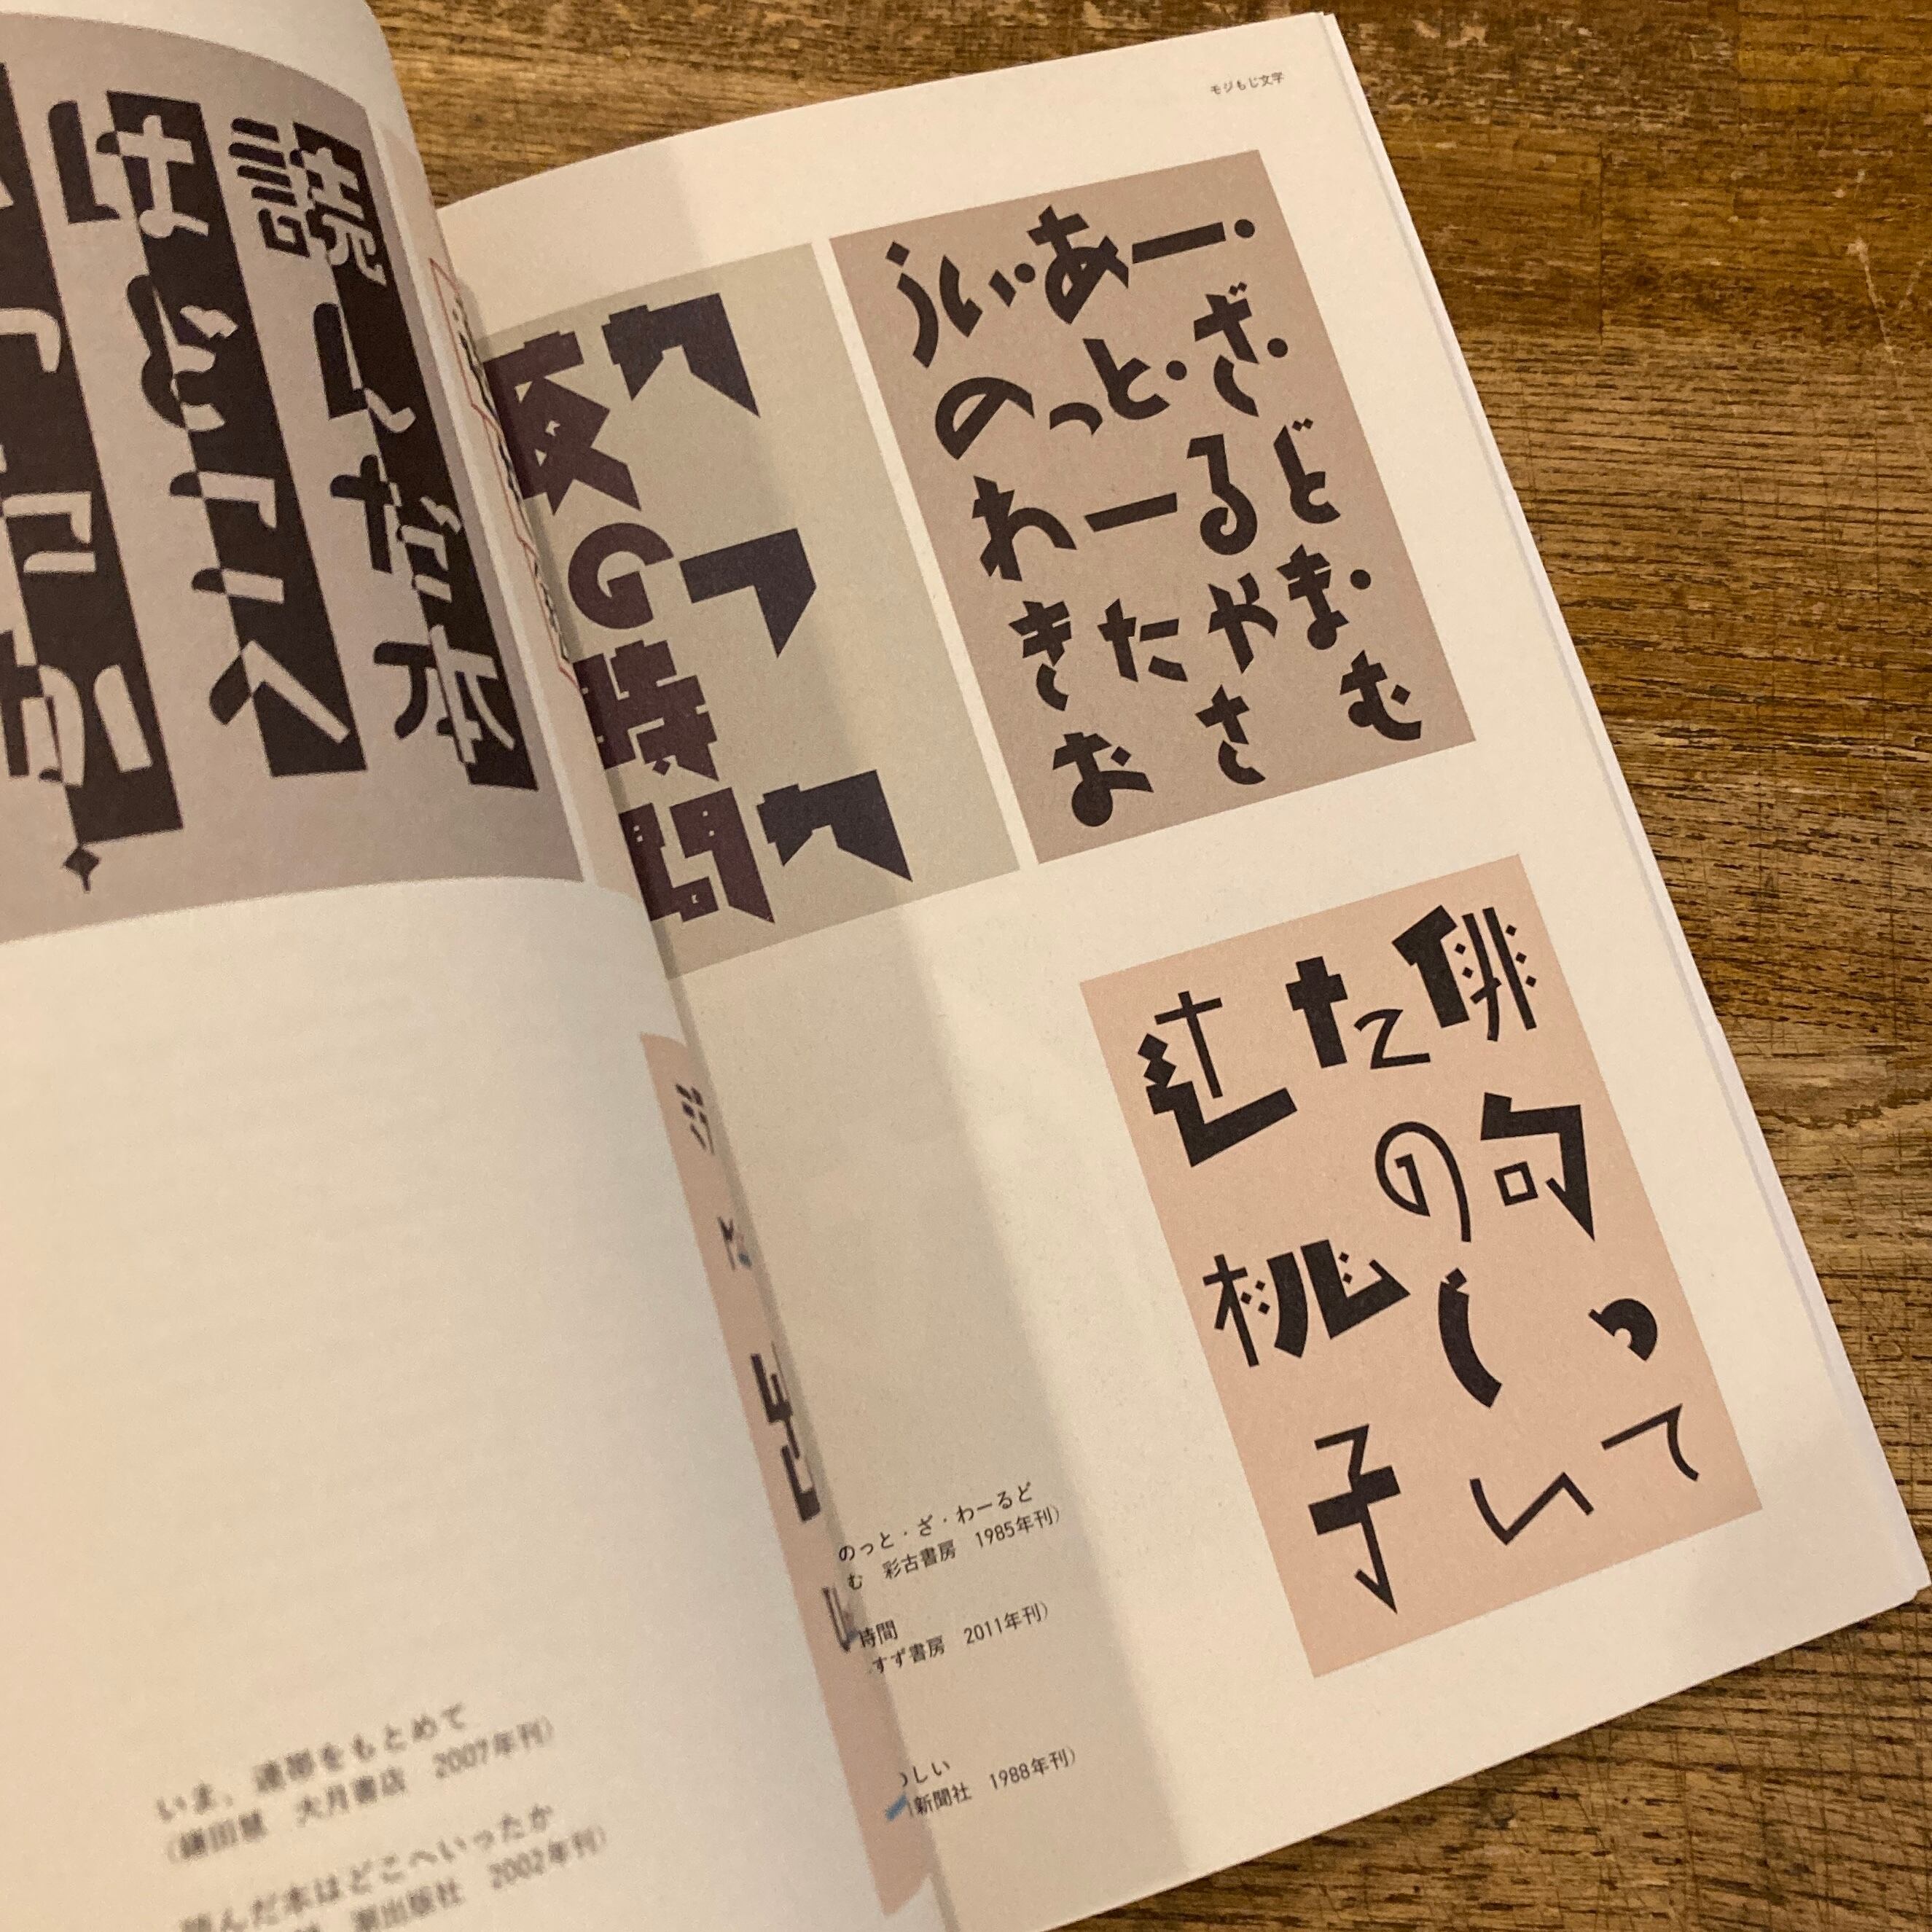 読んだ本
はどこへ
いま、連帯をもとめて
（鎌田慧　大月書店　2007年刊）
んだ本はどこへいったか
潮出版社　2002年刊）
モジもじ文字
うぃ・あー・
のっと・ざ・
わーるど
きたやま・
おさむ
の時間
俳句って
たのしい
辻桃子
のっと・ざ・わーるど
む　彩古書房　1985年刊）
時間
すず書房　2011年刊）
しい
新聞社　1988年刊）